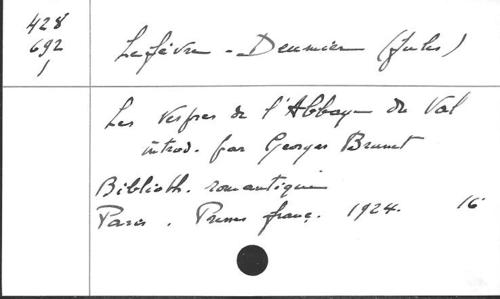 428
692
1
Lefèvre - Deumier (Jules)
Les Vespres de l'Abbaye du Val
introd. par Georges Brunet
Biblioth. romantique
Paris. Presses franç. 1924. 16°